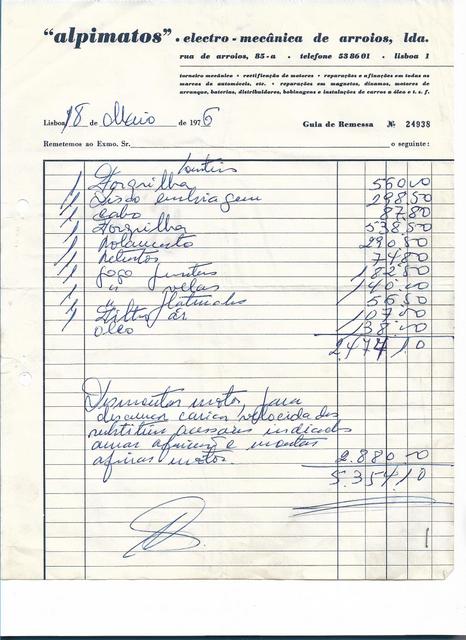 "alpimatos" • electro-mecânica de arroios, lda.
rua de arroios, 85-a • telefone 53 86 01 • lisboa 1
torneiro mecânico • rectificação de motores • reparações e afinações em todas as
marcas de automóveis, etc. • reparações em magnetos, dínamos, motores de
arranque, baterias, distribuidores, bobinagens e instalações de carros a óleo e t. s. f.
Lisboa, 18 de Maio de 1976 Guia de Remessa № 24938
Remetemos ao Exmo. Sr. o seguinte:
1 Forquilha 550.00
1 Disco embraiagem 298.50
1 Cabo 87.80
1 Forquilha 538.50
1 Rolamento 290.50
1 Retentor 74.80
1 Jogo juntas 182.50
1 " velas 140.00
1 " platinados 56.50
1 Filtro ar 107.00
1 óleo 138.00
2.474.10
Desmontar motor para
caixa velocidades
indicados
e montar
afinar motor. 2.880.00
5.354.10